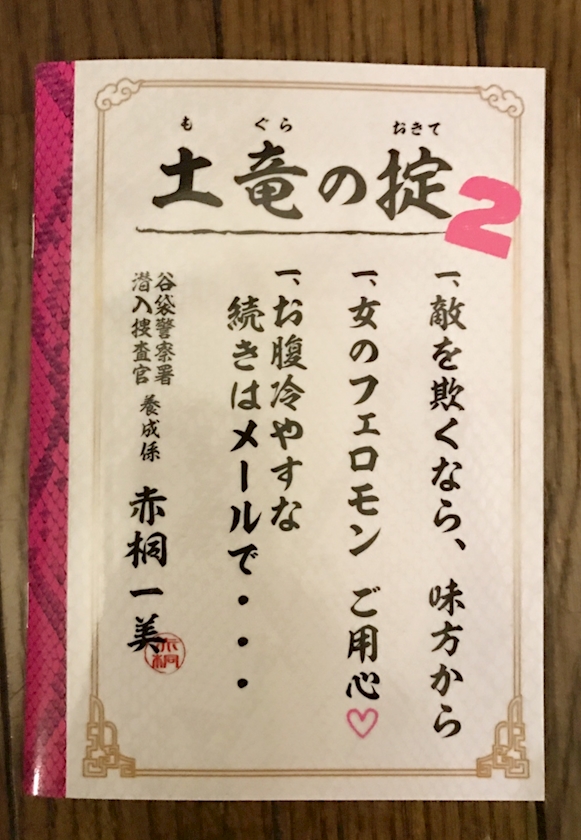 もぐら おきて
土竜の掟
2
一、敵を欺くなら、味方から
一、女のフェロモン ご用心♡
一、お腹冷やすな
続きはメールで・・・
谷袋警察署
潜入捜査官 養成係
赤桐一美
赤桐